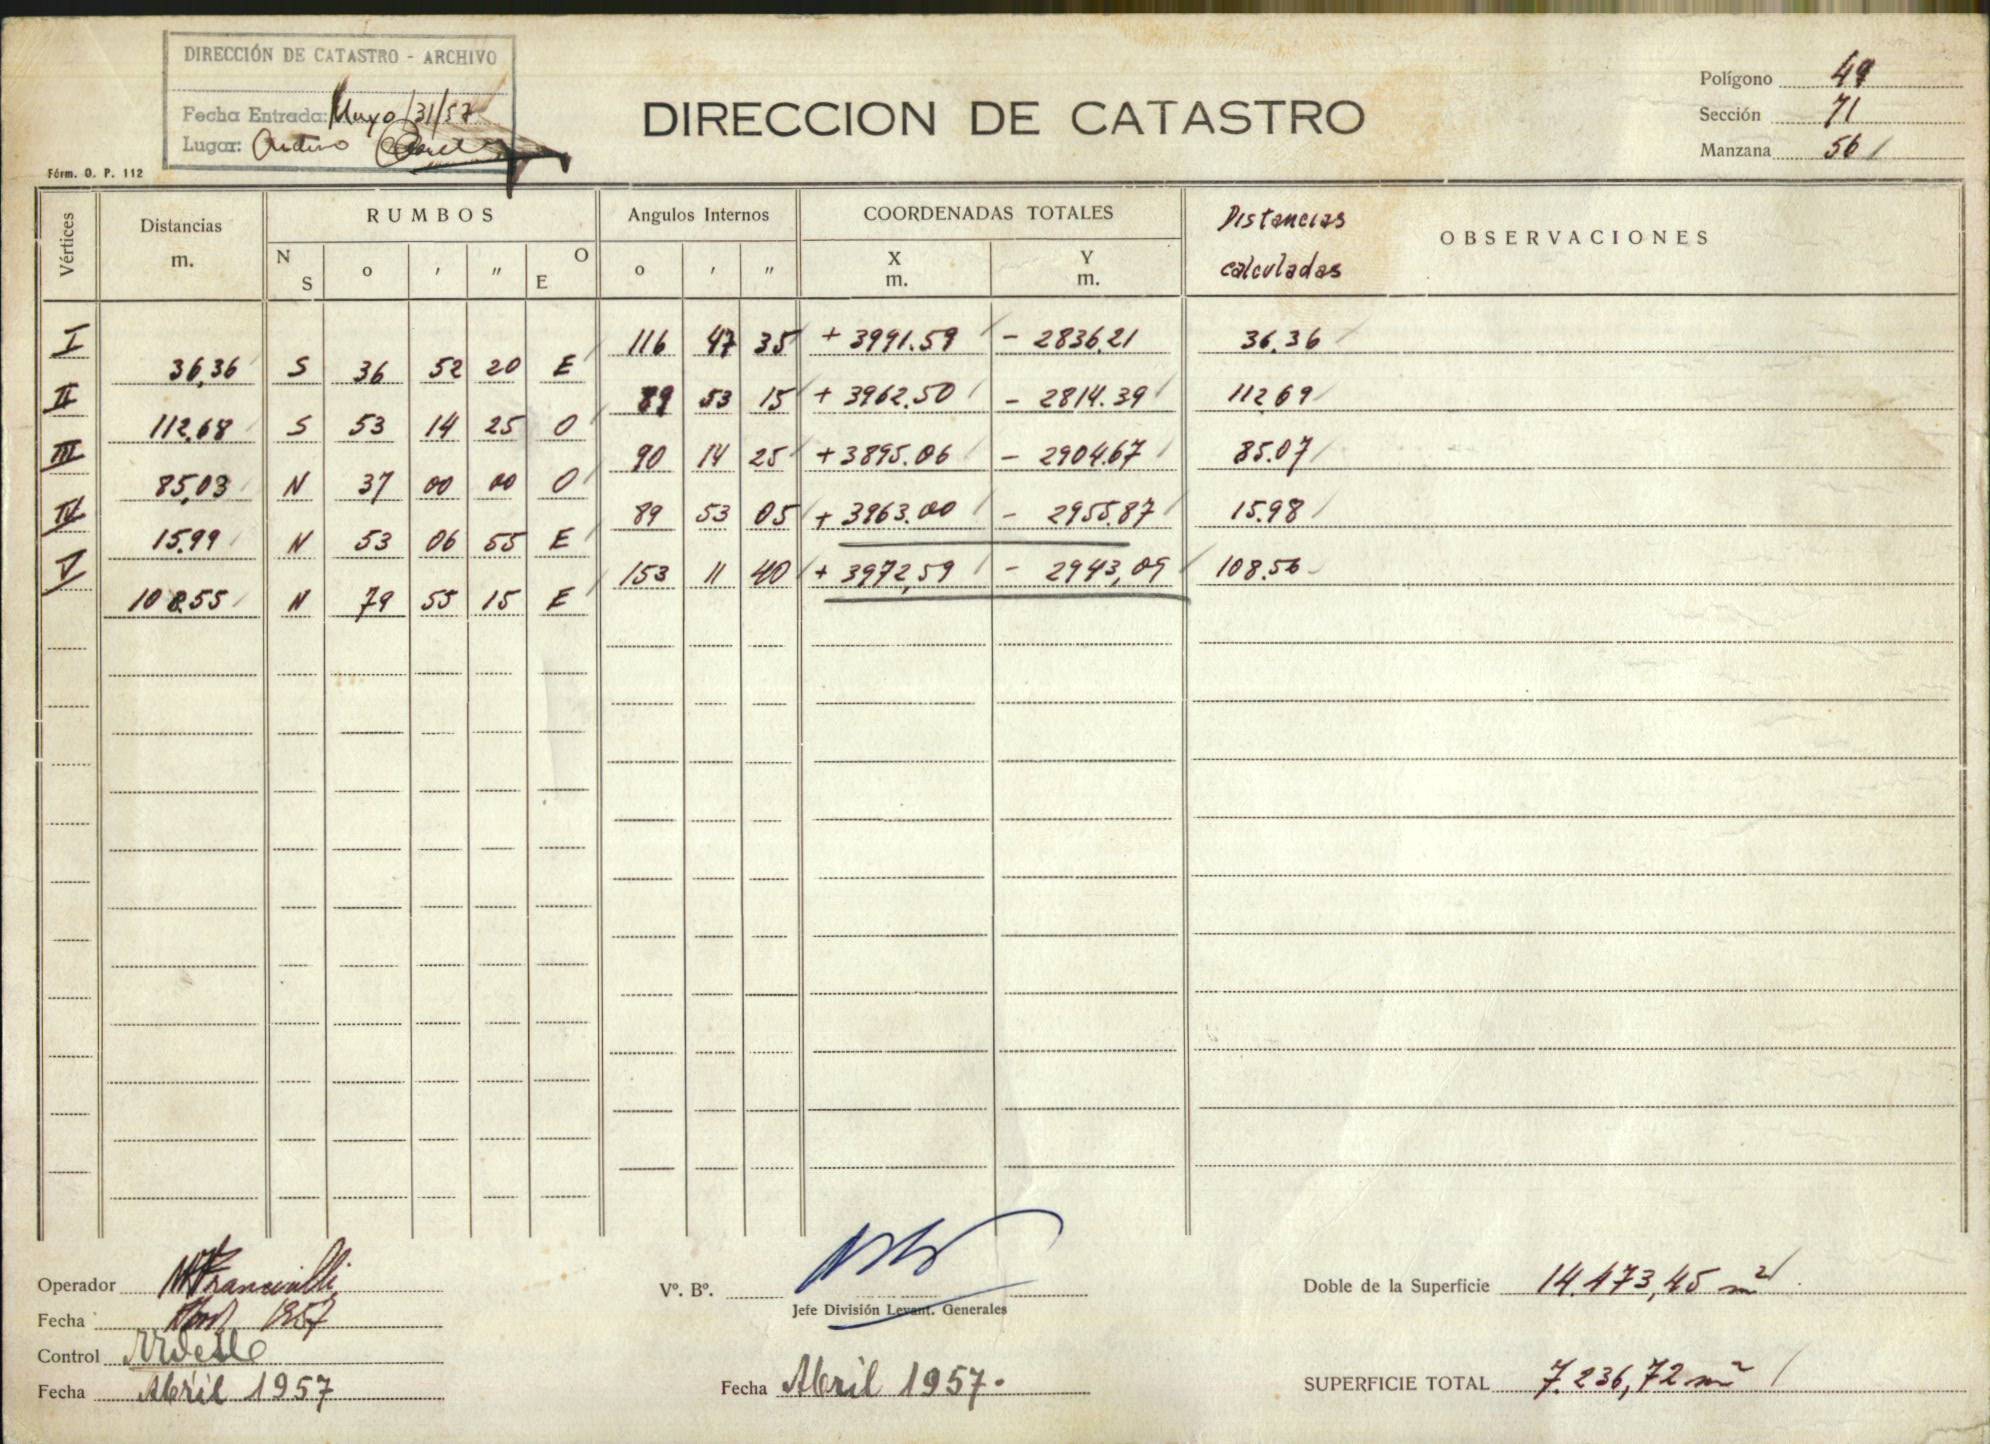 DIRECCIÓN DE CATASTRO - ARCHIVO
Fecha Entrada: Mayo/31/57
Lugar: Archivo
Fórm. O. P. 112
DIRECCION DE CATASTRO
Polígono 49
Sección 71
Manzana 56
Vértices Distancias m. RUMBOS Angulos Internos COORDENADAS TOTALES Distancias calculadas OBSERVACIONES
N S o ' " O E o ' " X m. Y m.
I 116 47 35 + 3991.59 - 2836.21 36.36
36,36 S 36 52 20 E
II 89 53 15 + 3962.50 - 2814.39 112 69
112,68 S 53 14 25 O
III 90 14 25 + 3895.06 - 2904.67 85.07
85,03 N 37 00 00 O
IV 89 53 05 + 3963.00 - 2955.87 15.98
15.99 N 53 06 55 E
V 153 11 40 + 3972,59 - 2943,09 108.56
108.55 N 79 55 15 E
Operador
Fecha Abril 1957
Control
Fecha Abril 1957
Vº. Bº.
Jefe División Levant. Generales
Fecha Abril 1957.
Doble de la Superficie 14.473,45 m²
SUPERFICIE TOTAL 7.236,72 m²